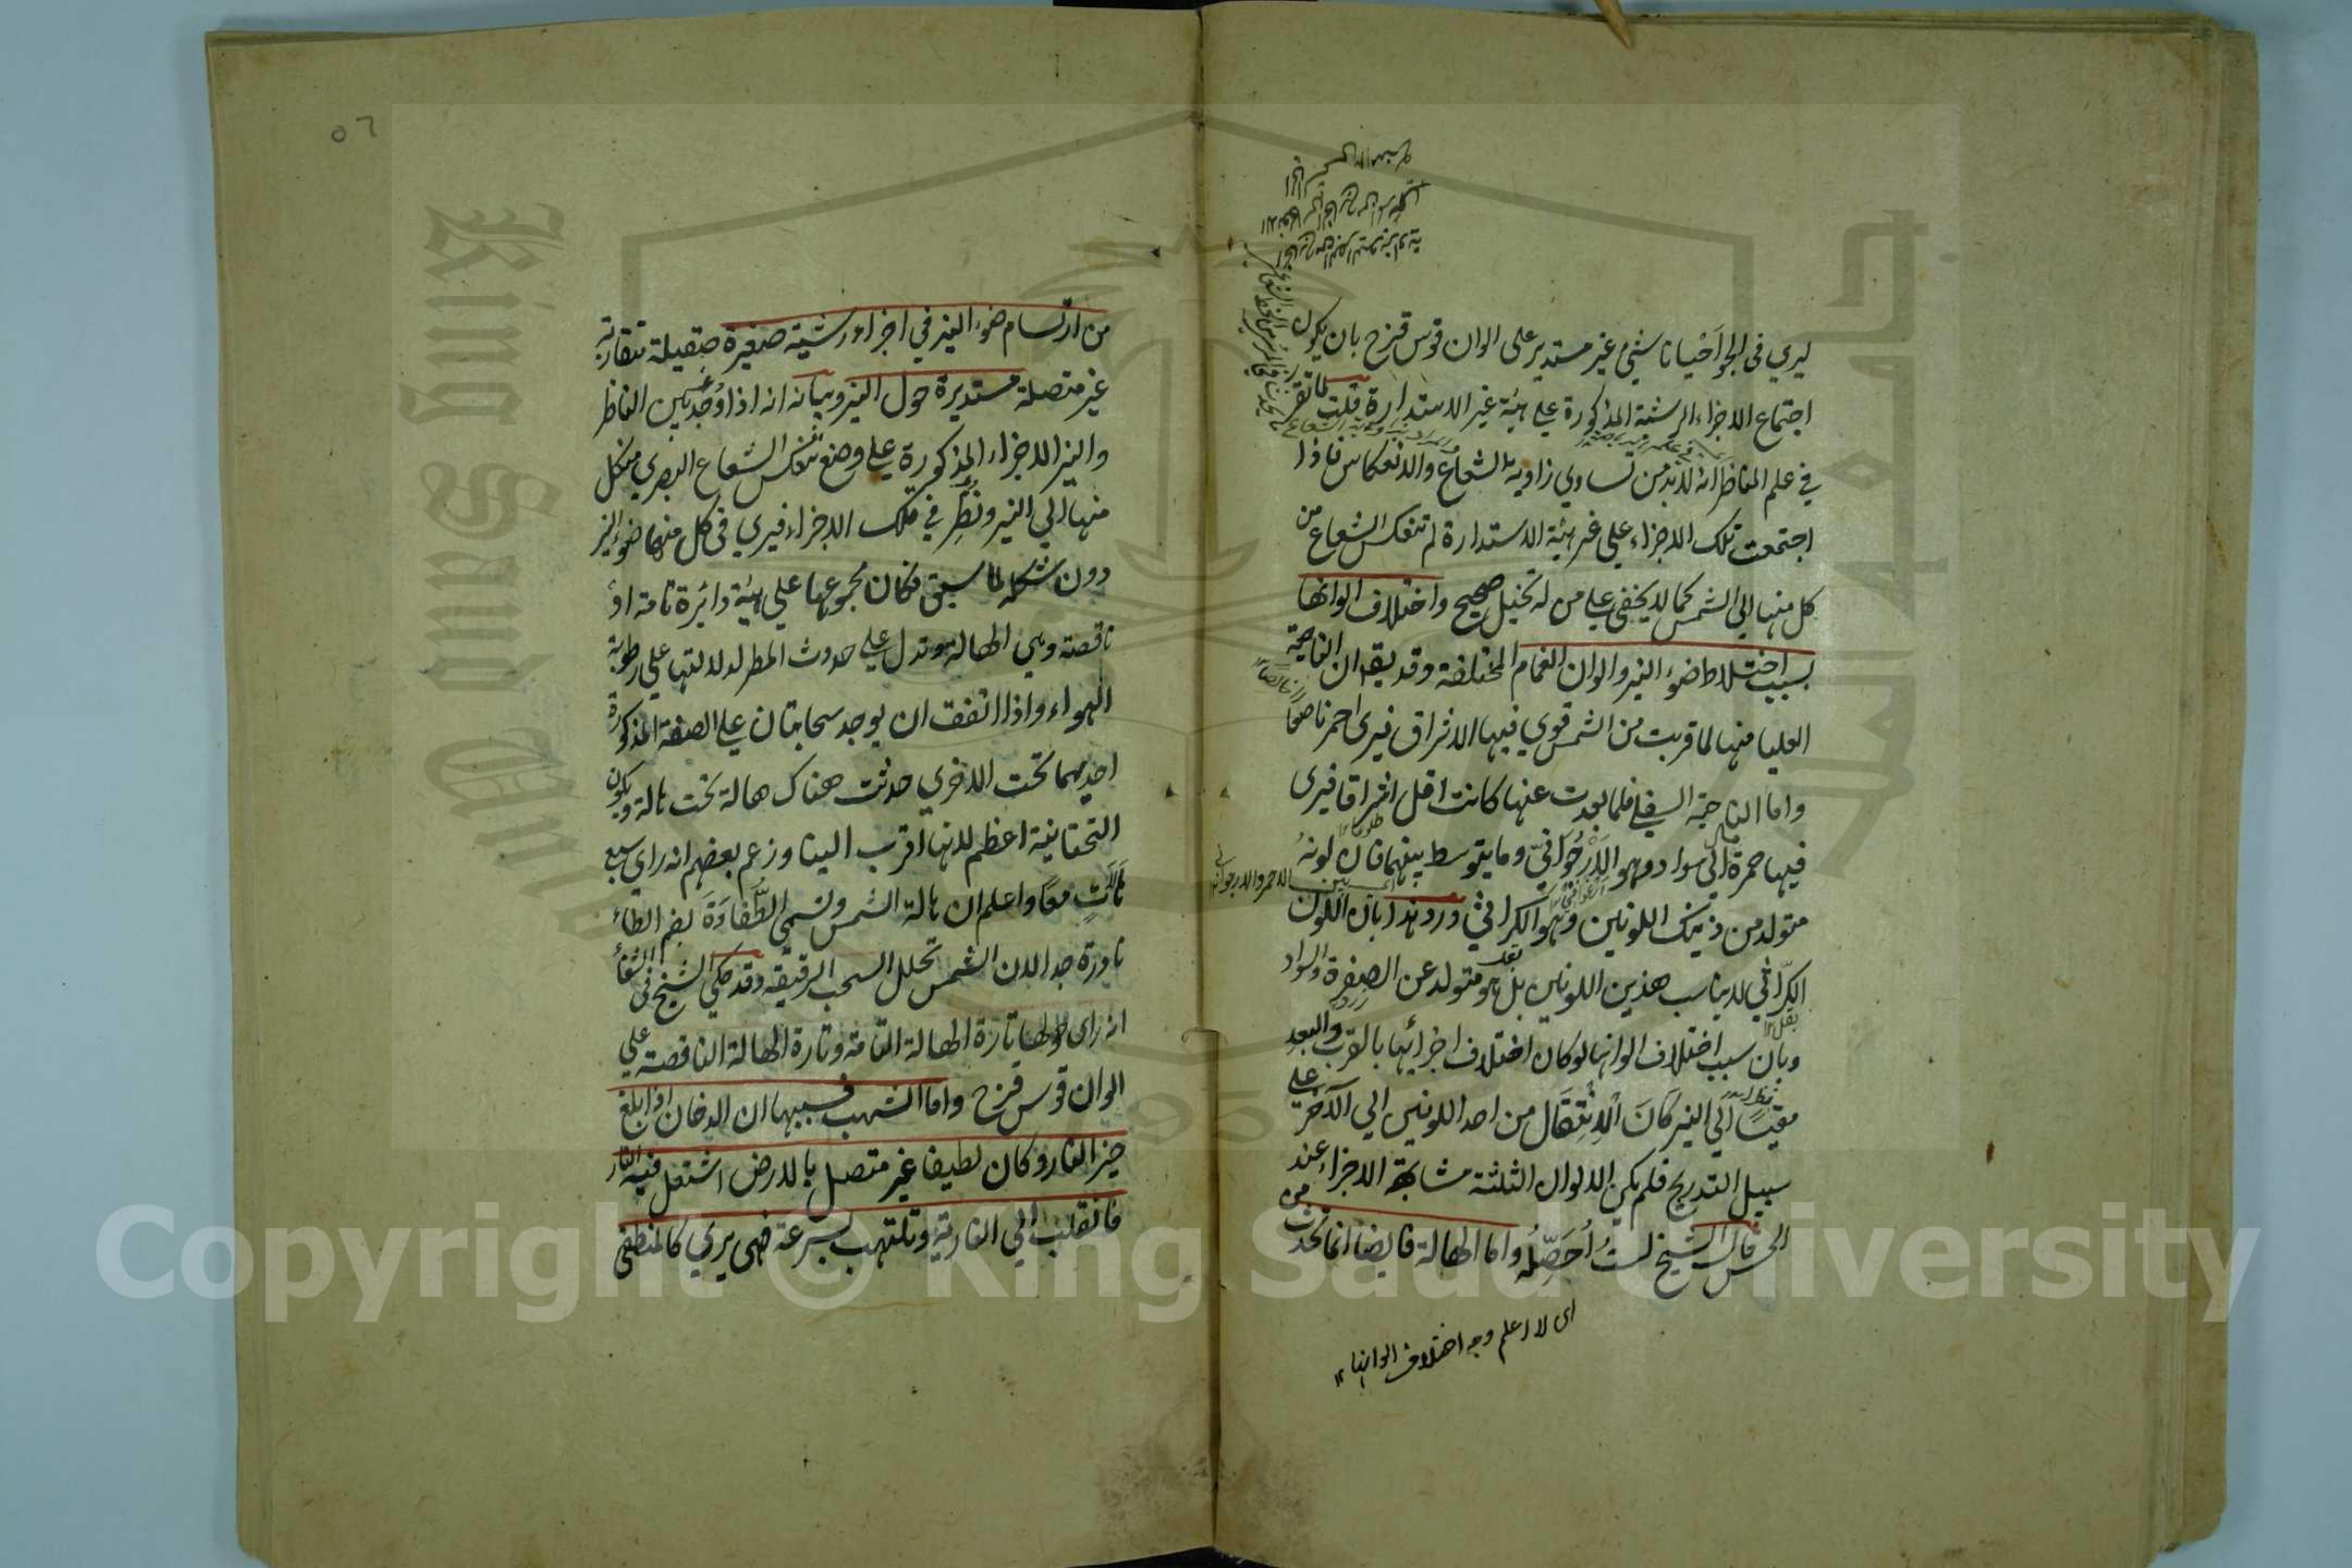 ليري في الجو احيانا شيء غير مستدير على الوان قوس قزح بان يكون
اجتماع الاجزاء الرشية المذكورة على هيئة غير الاستدارة قلت لما تقرر
في علم المناظر انه لابد من تساوي زاويتا الشعاع والانعكاس فاذا
اجتمعت تلك الاجزاء على غير هيئة الاستدارة لم تنعكس الشعاع من
كل منها الي الشمس كما لا يخفى على من له تخيل صحيح واختلاف الوانها
بسبب اختلاط ضوء النير والوان الغمام المختلفة وقد يقال ان الناحية
العليا منها لما قربت من الشمس قوي فيها الاشراق فيرى احمر ناصعا
واما الناحية السفلى فلما بعدت عنها كانت اقل اشراقا فيرى
فيها حمرة الى سواد وهو الارجواني وما يتوسط بينهما فان لونه
متولد من ذينك اللونين وهو الكراثي ورد هذا بان اللون
الكراثي لا يناسب هذين اللونين بل هو متولد عن الصفرة والسواد
وبان سبب اختلاف الوانها لو كان اختلاف اجزائها بالقرب والبعد
مقيسا الي النير كان الانتقال من احد اللونين الي الآخر على
سبيل التدريج فلم يكن الالوان الثلثة متشابهة الاجزاء عند
الحس قال الشيخ لست احصله واما الهالة فايضا انما تحدث من
اى لا اعلم وجه اختلاف الوانها ١٢
٥٦
من ارتسام ضوء النير في اجزاء رشية صغيرة صقيلة متقاربة
غير متصلة مستديرة حول النير وبيانه انه اذا وجد بين الناظر
والنير الاجزاء المذكورة على وضع تنعكس الشعاع البصري من كل
منها الي النير ونظر في تلك الاجزاء فيري في كل منها ضوء النير
دون شكله لما سبق فكان مجموعها على هيئة دائرة تامة او
ناقصة وهي الهالة وتدل على حدوث المطر لدلالتها على رطوبة
الهواء واذا اتفق ان يوجد سحابتان على الصفة المذكورة
احديهما تحت الاخري حدثت هناك هالة تحت هالة ويكون
التحتانية اعظم لانها اقرب الينا وزعم بعضهم انه راي سبع
هالات معا واعلم ان هالة الشمس وتسمى الطفاوة بضم الطاء
نادرة جدا لان الشمس تحلل السحب الرقيقة وقد حكي الشيخ في الشفاء
انه راى حولها تارة الهالة التامة وتارة الهالة الناقصة على
الوان قوس قزح واما الشهب فسببها ان الدخان اذا بلغ
حيز النار وكان لطيفا غير متصل بالارض اشتعل فيه النار
فانقلب الي النارية وتلتهب بسرعة فهي يري كالمنطفي
Copyright © King Saud University